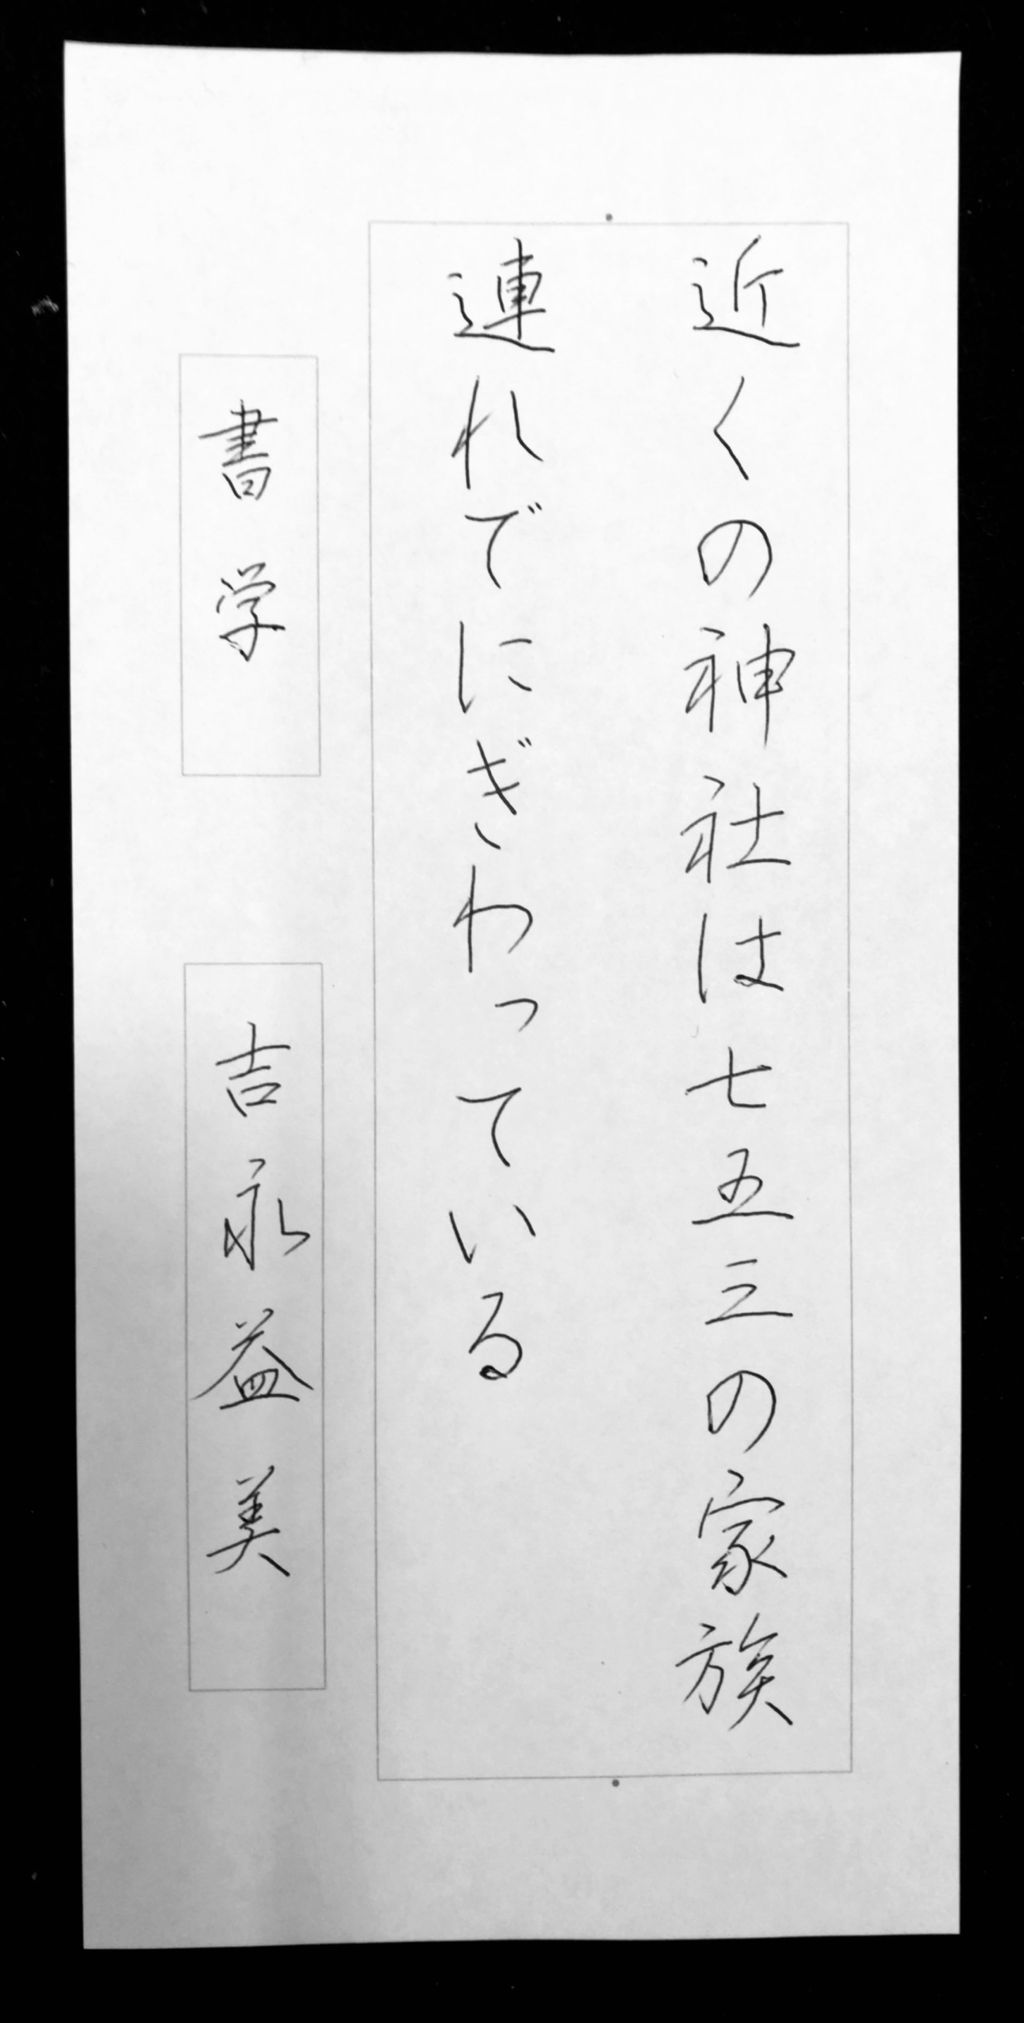 近くの神社は七五三の家族
連れでにぎわっている
書学
吉永益美